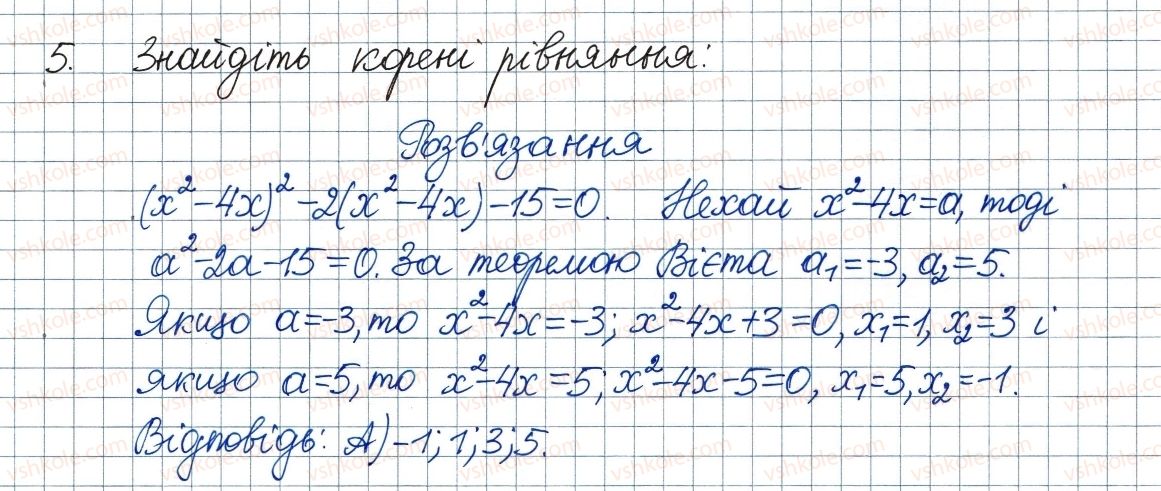 5. Знайдіть корені рівняння:
Розв'язання
(x²-4x)²-2(x²-4x)-15=0. Нехай x²-4x=a, тоді
a²-2a-15=0. За теоремою Вієта a₁=-3, a₂=5.
Якщо a=-3, то x²-4x=-3; x²-4x+3=0, x₁=1, x₂=3 і
якщо a=5, то x²-4x=5; x²-4x-5=0, x₁=5, x₂=-1.
Відповідь: А) -1; 1; 3; 5.